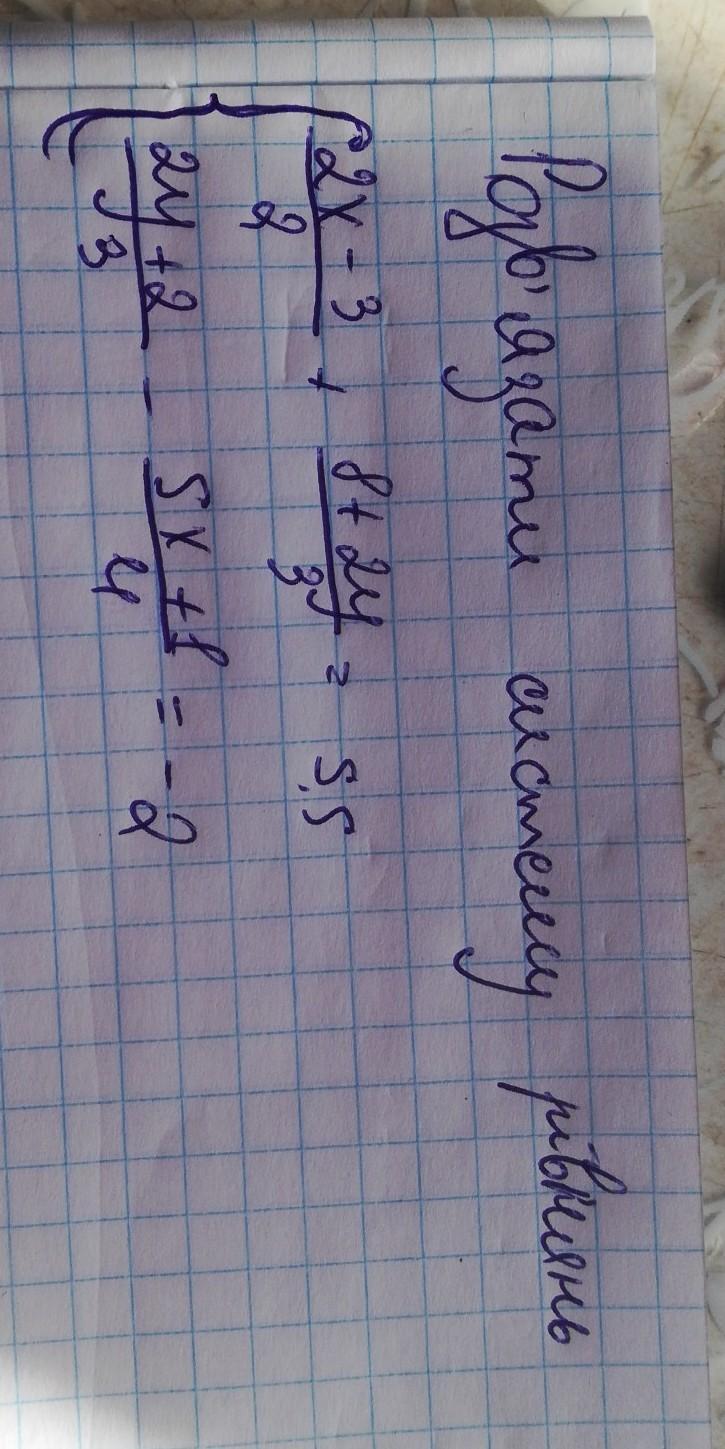 Розв'язати систему рівнянь
2x - 3 / 2 + 8 + 2y / 3 = 5,5
2y + 2 / 3 - 5x + 8 / 4 = -2